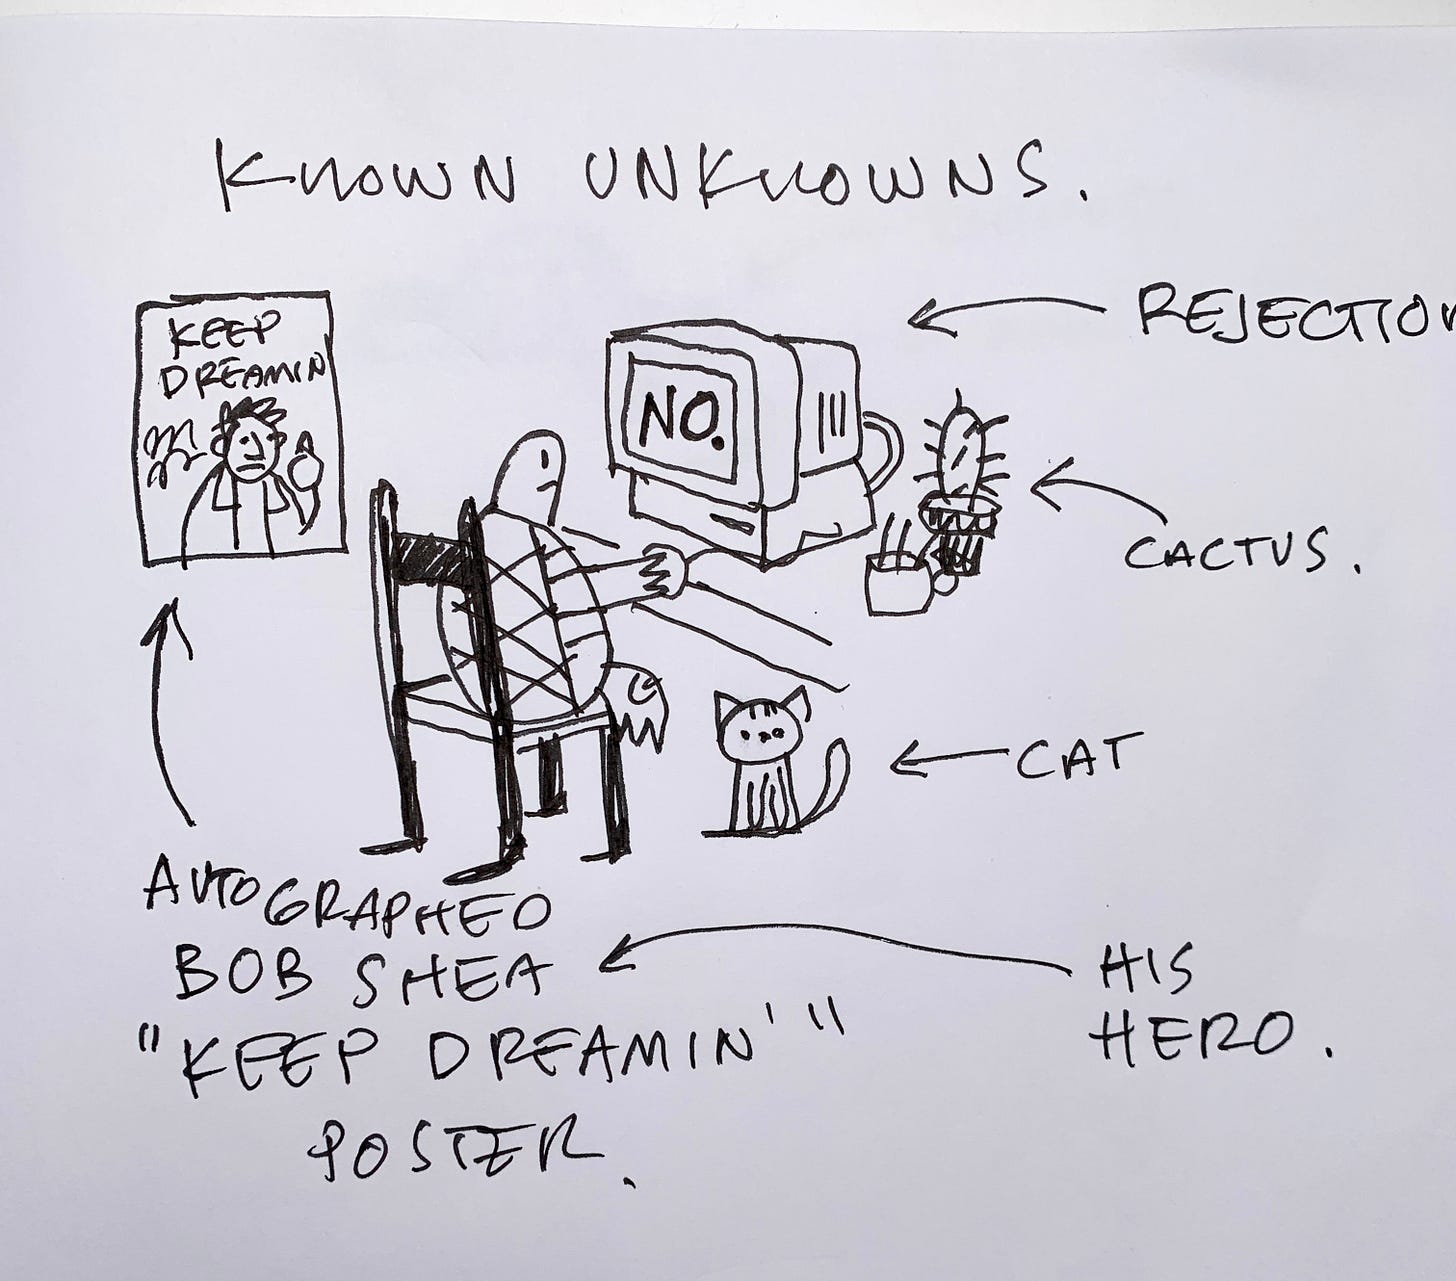 KNOWN UNKNOWNS.
KEEP
DREAMIN
NO.
REJECTION
CACTUS.
CAT
AUTOGRAPHED
BOB SHEA
"KEEP DREAMIN'"
POSTER.
HIS
HERO.